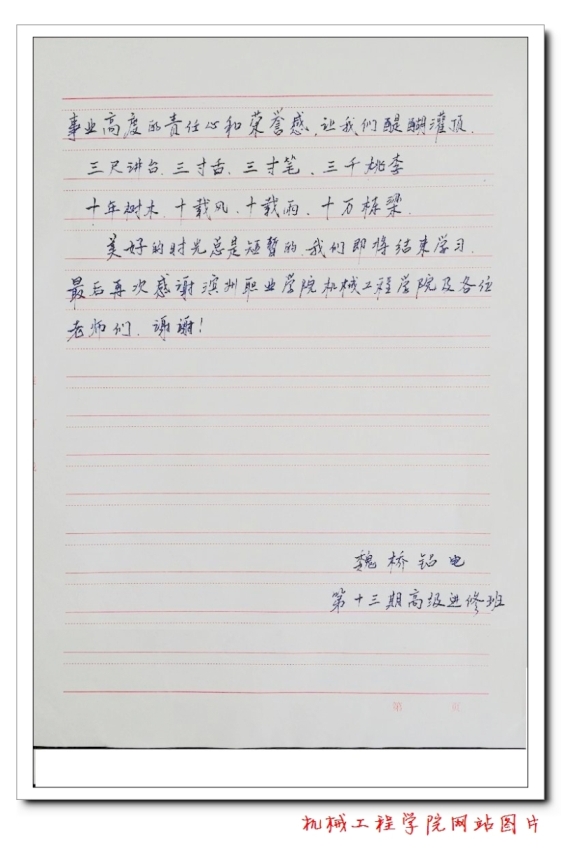 事业高度的责任心和荣誉感,让我们醍醐灌顶.
三尺讲台.三寸舌.三寸笔、三千桃李
十年树木.十载风.十载雨.十万栋梁.
美好的时光总是短暂的.我们即将结束学习.
最后再次感谢滨州职业学院机械工程学院及各位
老师们.谢谢!
魏桥铝电
第十三期高级进修班
第 页
机械工程学院网站图片